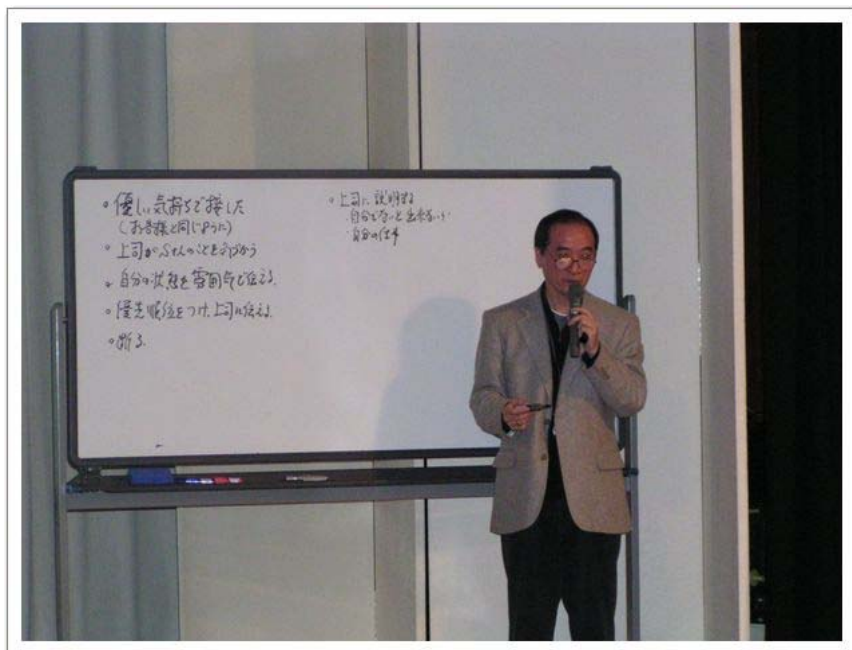 。優しい気持ちで接した
(お客様と同じように)
。上司が
。自分の状態を雰囲気で伝える
。優先順位をつけ、上司に伝える
。断る
。上司に説明する
自分でないと出来ない
・自分の仕事